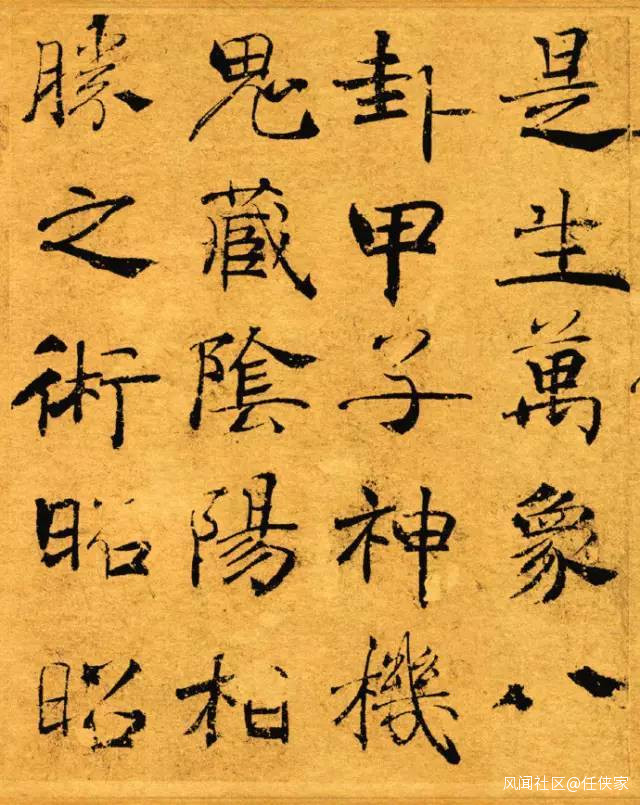 是生萬象八
卦甲子神機
鬼藏陰陽相
勝之術昭昭
风闻社区@任侠家